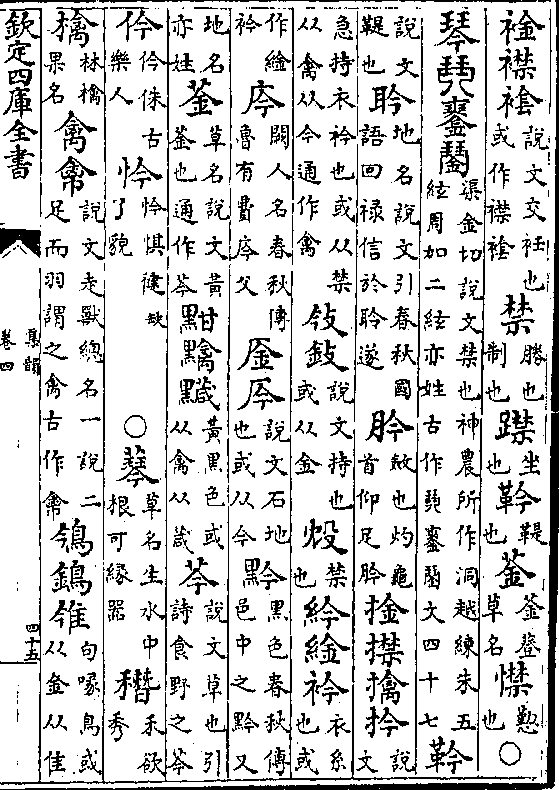 䘳襟䙆說文交衽也或作襟䘳禁勝也制也䠴坐也靲鞮也菳菳䔲草名㦗懃也○
琴珡八𨥖䦦渠金切說文禁也神農所作洞越練朱五絃周加二絃亦姓古作珡𨥖䦦文四十七靲
說文鞮也聆地名說文引春秋國語回祿信於聆遂肣㪇也灼龜首仰足肣捦㩒擒扲說文
急持衣衿也或从禁从禽从今通作禽㪁㪁說文持也或从金㷡禁也紟䋮衿衣系也或
作䋮衿庈闕人名春秋傳魯有費庈父䥆㕂說文石地也或从今黔黑色春秋傳邑中之黔又
地名亦姓菳草名說文黃菳也通作芩黚黚黬黃黑色或从禽从葴芩說文草也引詩食野之芩
伶伶侏古樂人忴忴惧健缺了貌○䔷草名生水中根可緣器䅾禾欲秀
檎林檎果名禽𥝢說文走獸總名一說二足而羽謂之禽古作𥝢鳹鵭雂句喙鳥或从金从隹
欽定四庫全書
集韻
卷四
四十五